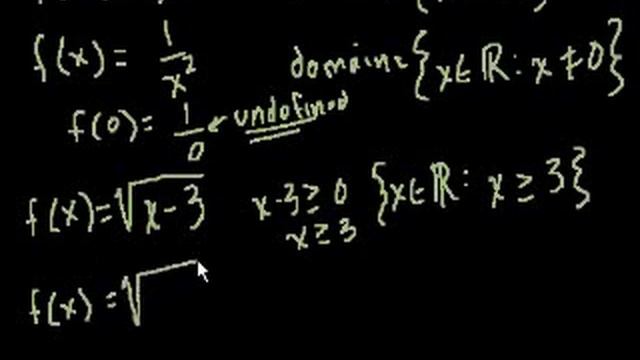 f(x) = 1/x² domain: {x∈ℝ : x ≠ 0}
f(0) = 1/0 ← undefined
f(x) = √(x-3) x-3 ≥ 0 {x∈ℝ : x ≥ 3}
x ≥ 3
f(x) = √